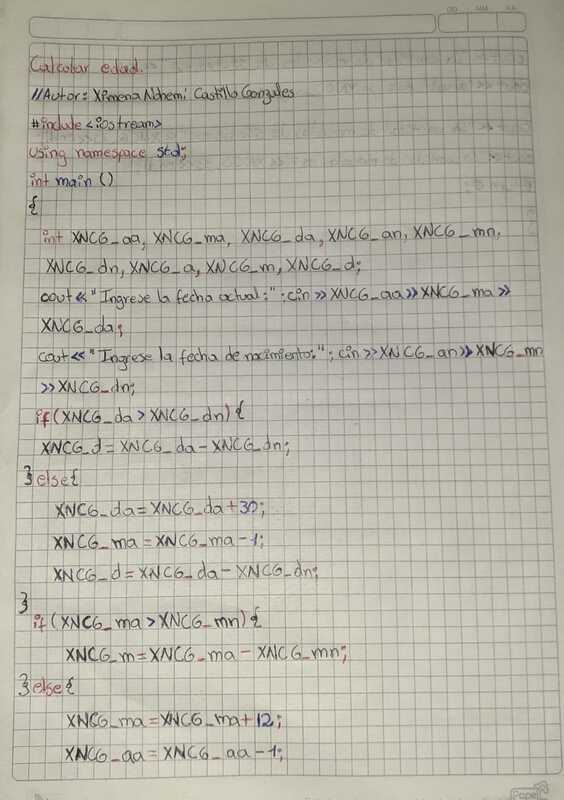 DD MM AA
Calcular edad.
//Autor: Ximena Nohemi Castillo Gonzales
#include <iostream>
using namespace std;
int main ()
{
int XNCG_aa, XNCG_ma, XNCG_da, XNCG_an, XNCG_mn,
XNCG_dn, XNCG_a, XNCG_m, XNCG_d;
cout << "Ingrese la fecha actual:" ; cin >> XNCG_aa >> XNCG_ma >>
XNCG_da;
cout << "Ingrese la fecha de nacimiento:" ; cin >> XNCG_an >> XNCG_mn
>> XNCG_dn;
if (XNCG_da > XNCG_dn) {
XNCG_d = XNCG_da - XNCG_dn;
} else {
XNCG_da = XNCG_da + 30;
XNCG_ma = XNCG_ma - 1;
XNCG_d = XNCG_da - XNCG_dn;
}
if (XNCG_ma > XNCG_mn) {
XNCG_m = XNCG_ma - XNCG_mn;
} else {
XNCG_ma = XNCG_ma + 12;
XNCG_aa = XNCG_aa - 1;
Papel